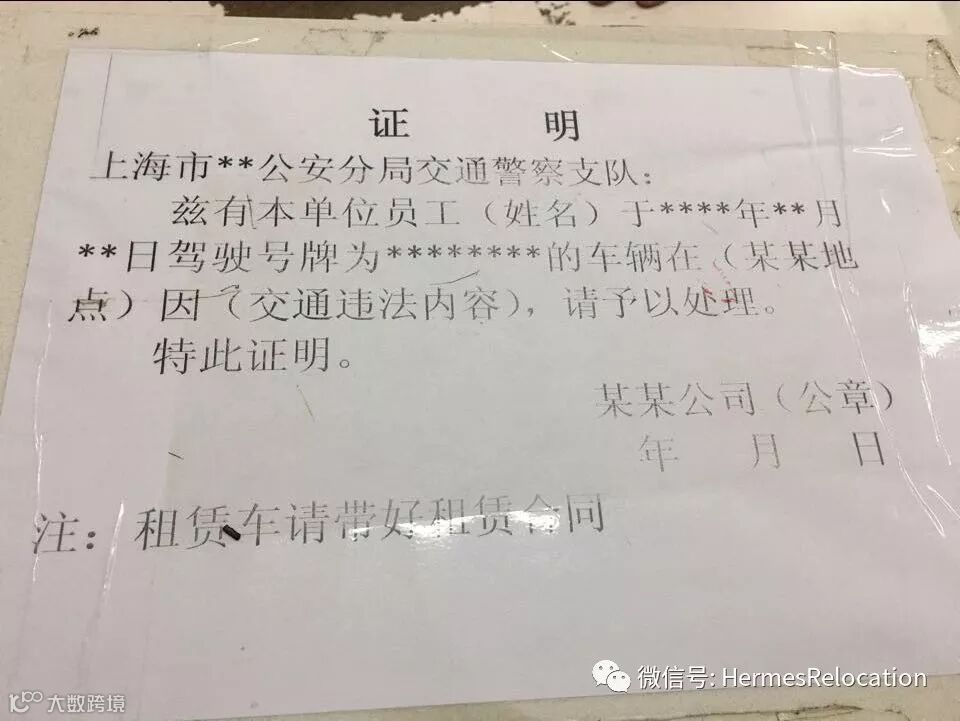 证 明
上海市**公安分局交通警察支队：
兹有本单位员工（姓名）于****年**月
**日驾驶号牌为********的车辆在（某某地
点）因（交通违法内容），请予以处理。
特此证明。
某某公司（公章）
年 月 日
注：租赁车请带好租赁合同
微信号: HermesRelocation
大数跨境